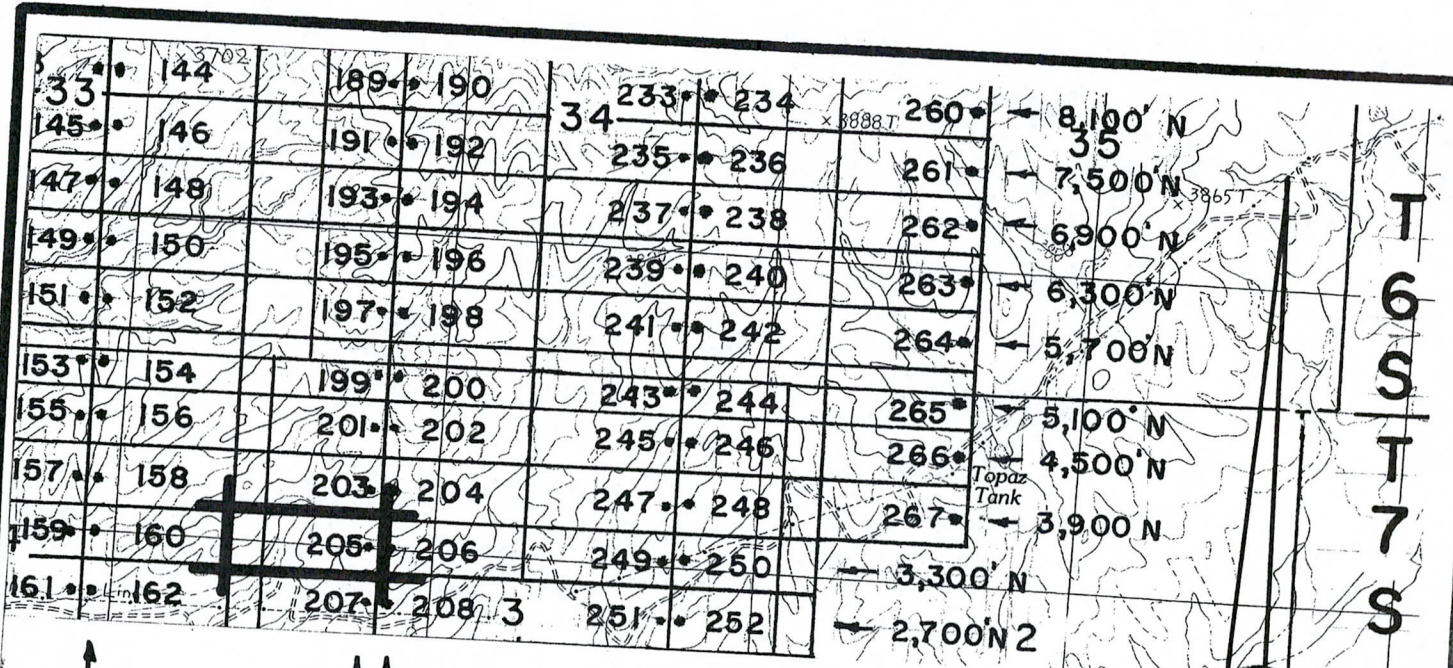 3702
144 189 190 233 234 260 8,100' N
33 34 3888T 35
145 146 191 192 235 236 261 7,500'N
3865T
147 148 193 194 237 238 262 6,900'N
149 150 195 196 239 240 263 6,300'N
151 152 197 198 241 242 264 5,700'N
153 154 199 200 243 244 265 5,100'N
155 156 201 202 245 246 266 4,500'N
Topaz
Tank
157 158 203 204 247 248 267 3,900 N
159 160 205 206 249 250 3,300' N
161 162 207 208 3 251 252 2,700'N 2
T
6
S
T
7
S